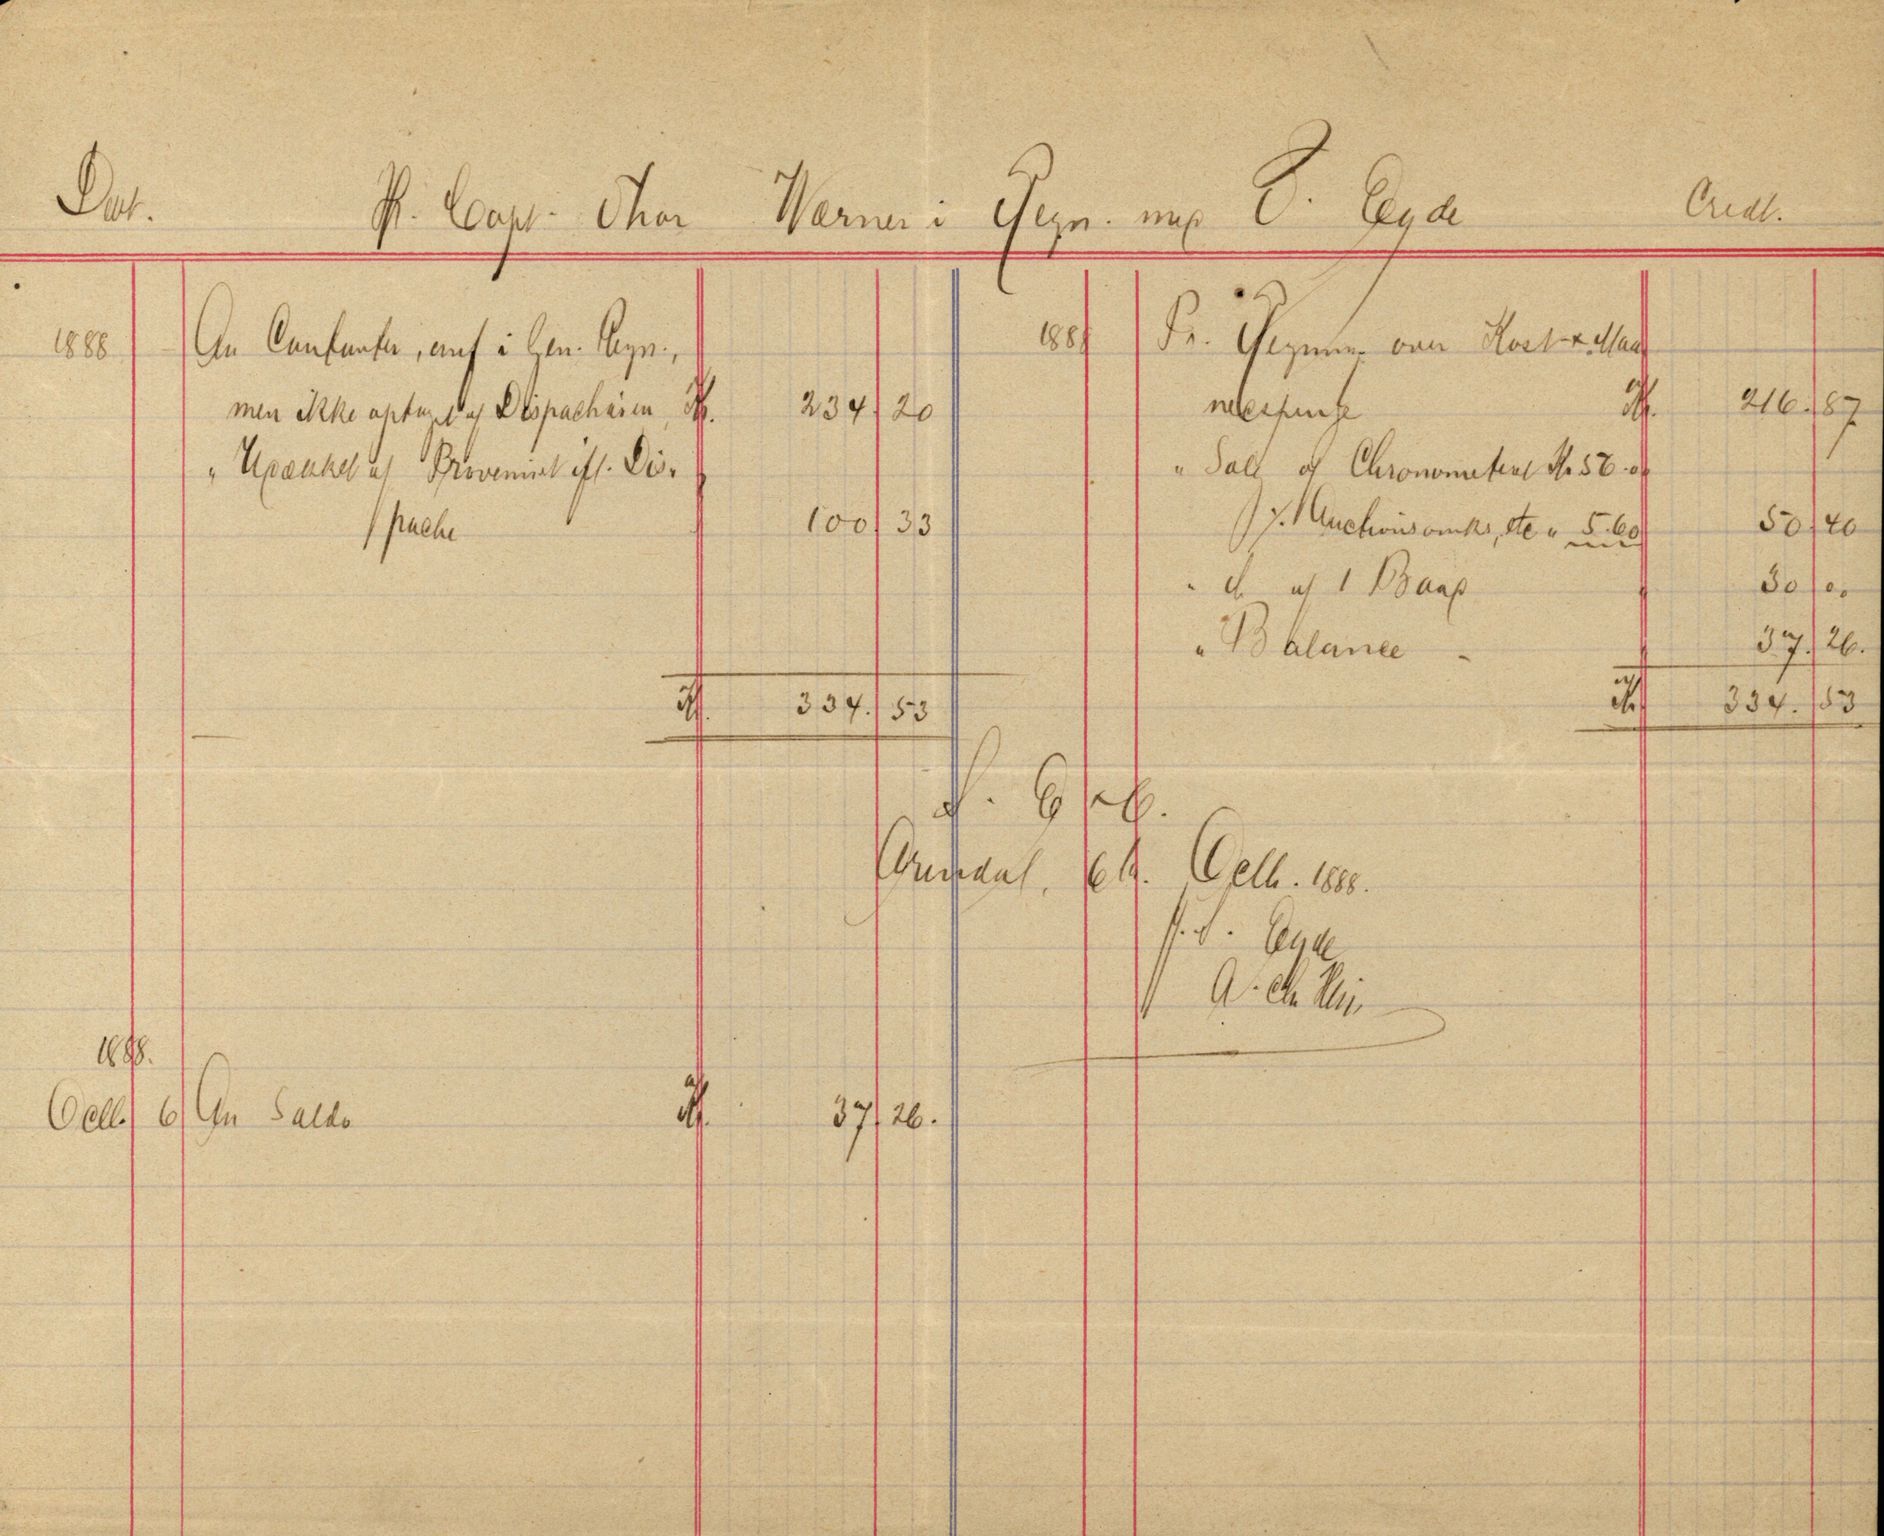 Debt. Hr. Capt. Thor Warner i Regn. med S. Eyde Credt.
1888 An Contanter, anf i Gen. Regn.,
men ikke optaget af Dispacheuren, Kr. 234. 20
" af Provenuet ifl. Dis-
pache 100. 33
Kr. 334. 53
1888 Pr. Regning over Kost & Maa-
nedspenge Kr. 216. 87
" Salg af Chronometeret Kr. 56.00
./. Auctionsomks, etc " 5.60 50. 40
" do af 1 Baad 30. 00
" Balance - 37. 26.
Kr. 334. 53
S. E & O.
Arendal, 6te Octb. 1888.
p. S. Eyde
A. Chr.
1888.
Octb. 6 An Saldo Kr. 37. 26.